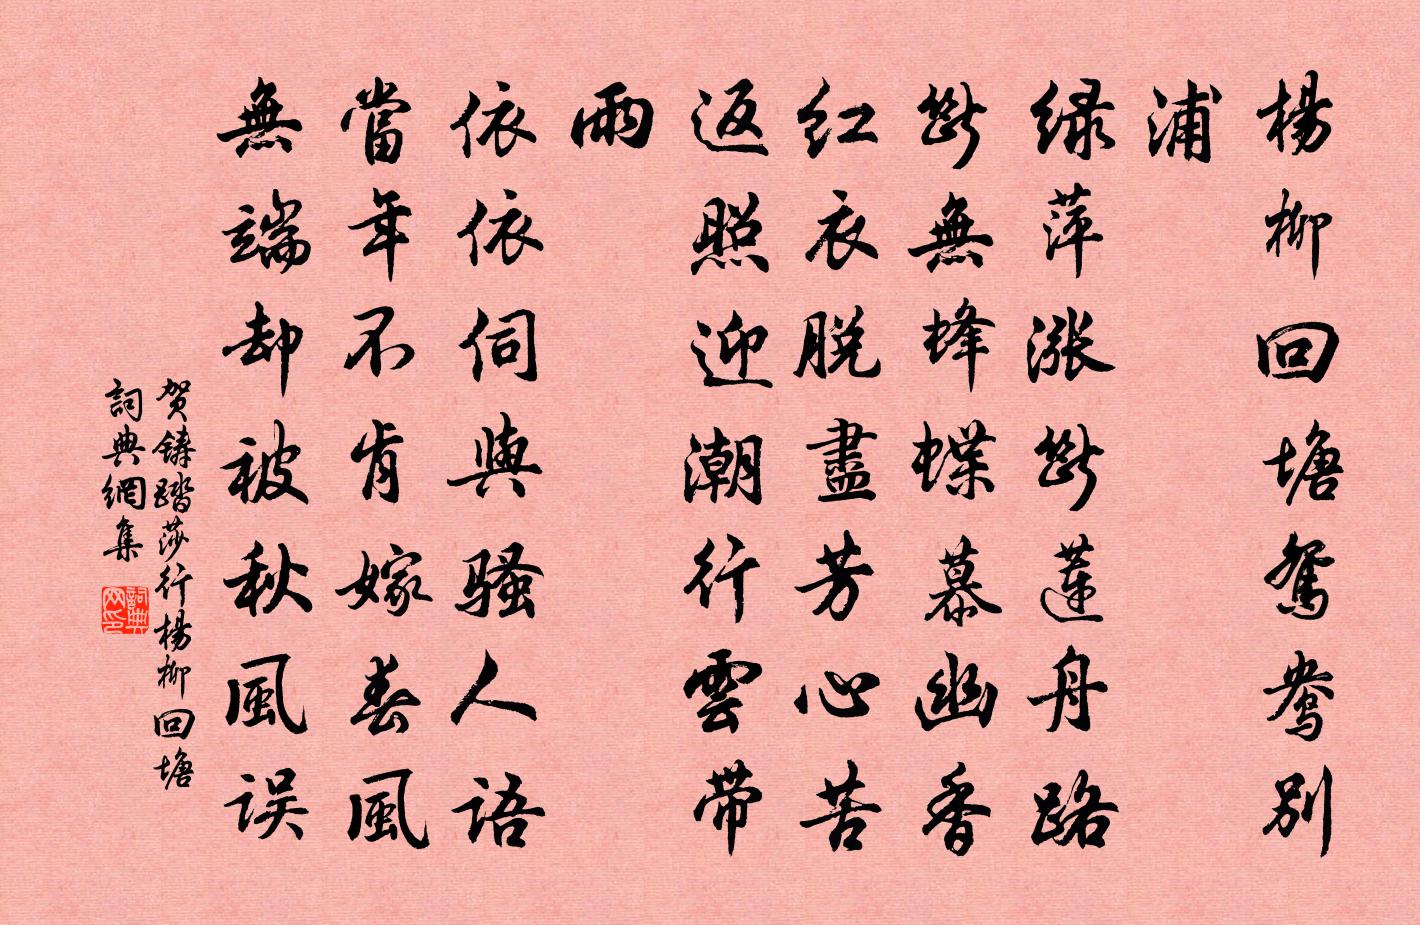 楊柳回塘鴛鴦别
浦
绿萍漲斷蓮舟路
斷無蜂蝶慕幽香
红衣脱盡芳心苦
返照迎潮行雲带
雨
依依伺與骚人語
當年不肯嫁春風
無端却被秋風误
贺鑄踏莎行楊柳回塘
詞典網集
詞典网印